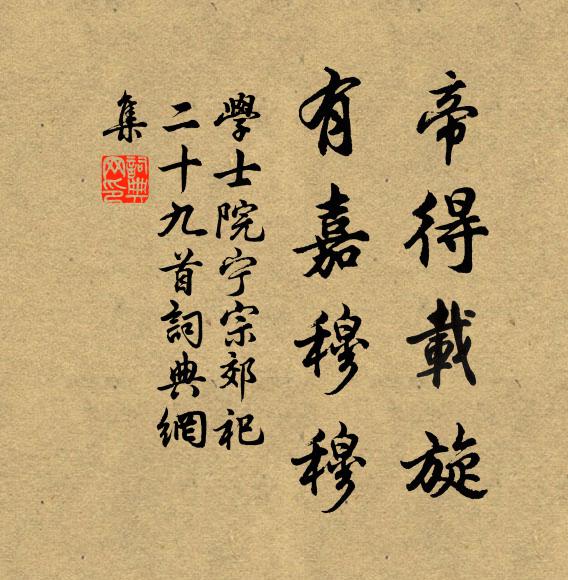 帝得載旋
有嘉穆穆
學士院宁宗郊祀
二十九首詞典網
集
詞典網印